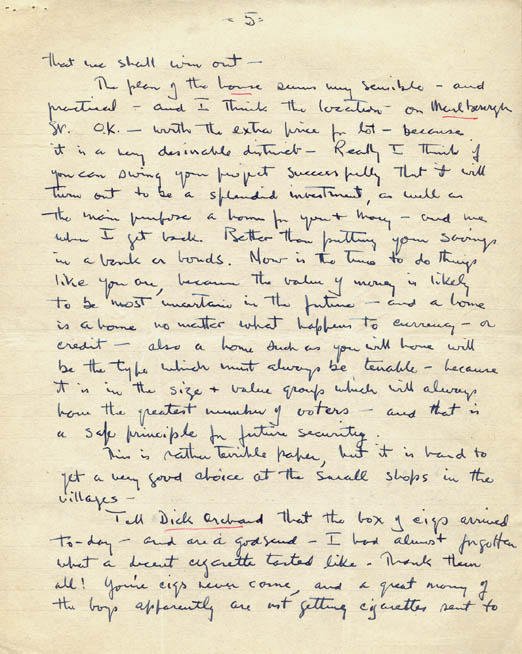 - 5 -
that we shall win out —
The plan of the house seems very sensible - and
practical - and I think the location - on Marlborough
St. O.K. — worth the extra price for lot - because
it is a very desirable district - Really I think if
you can swing your project successfully that it will
turn out to be a splendid investment, as well as
the main purpose a home for you + Mary - and me
when I get back. Better than putting your savings
in a bank or bonds. Now is the time to do things
like you are, because the value of money is likely
to be most uncertain in the future - and a home
is a home no matter what happens to currency - or
credit - also a home such as you will have will
be the type which must always be tenable - because
it is in the size + value group which will always
have the greatest number of voters - and that is
a safe principle for future security.
This is rather terrible paper, but it is hard to
get a very good choice at the small shops in the
villages -
Tell Dick Orchard that the box of cigs arrived
to-day - and are a godsend - I had almost forgotten
what a decent cigarette tasted like. Thank them
all! Your cigs never come, and a great many of
the boys apparently are not getting cigarettes sent to